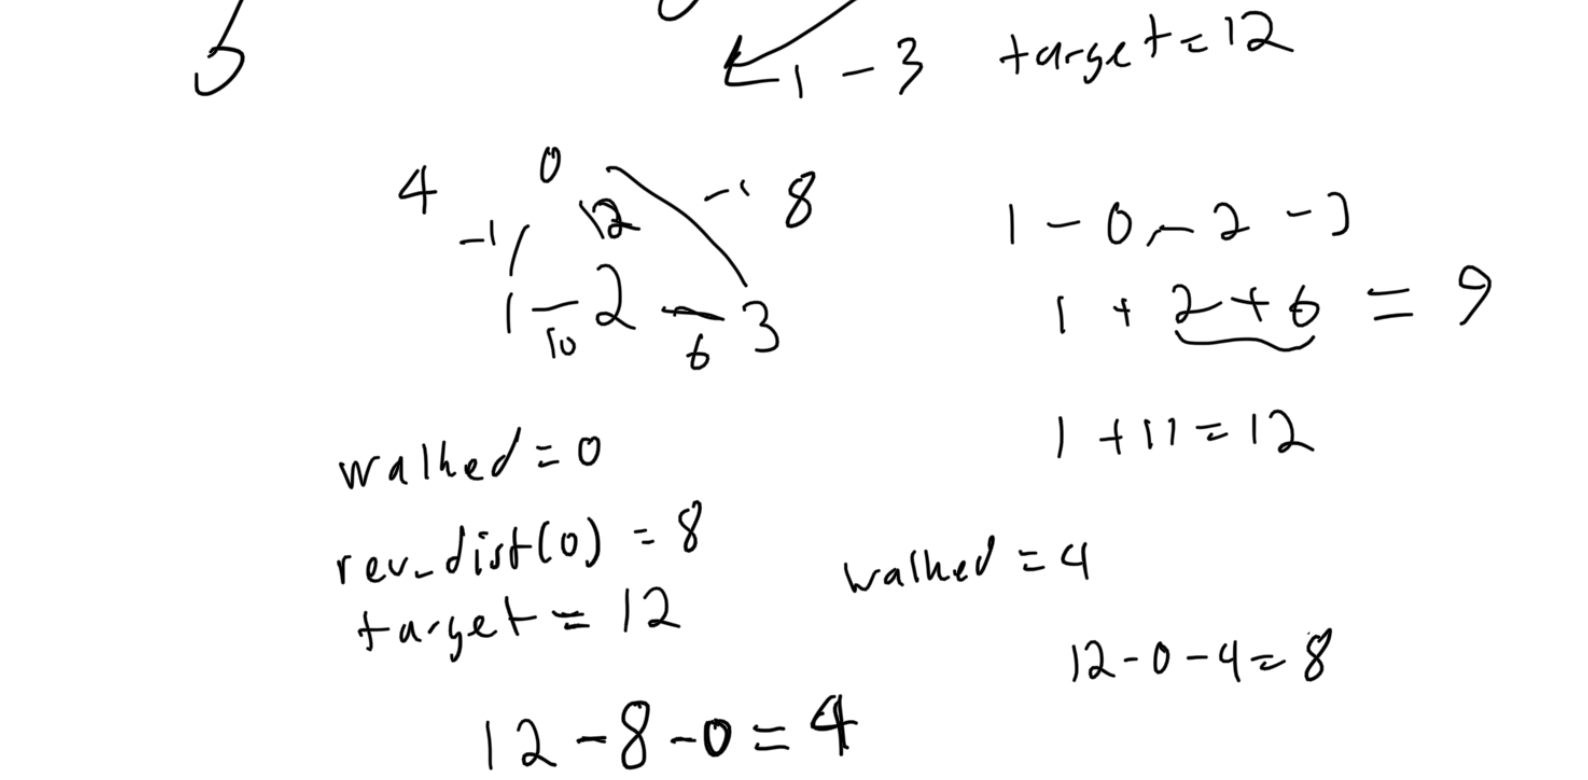 5
1 - 3 target = 12
4 0 -1 8
-1 12
1 - 2 - 3
10 6
1 - 0 - 2 - 3
1 + 2 + 6 = 9
1 + 11 = 12
walked = 0
rev_dist(0) = 8
target = 12
12 - 8 - 0 = 4
walked = 4
12 - 0 - 4 = 8